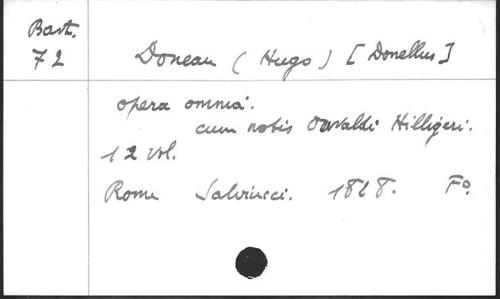 Bart.
72
Doneau (Hugo) [Donellus]
opera omnia.
cum notis Osvaldi Hilligeri.
12 vol.
Rome Salviucci. 1828. Fo.